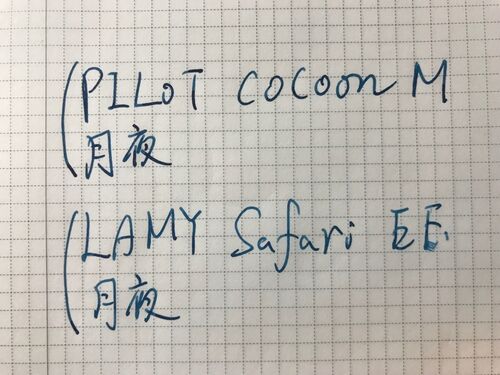 PILOT cocoon M
月夜
LAMY Safari EF.
月夜